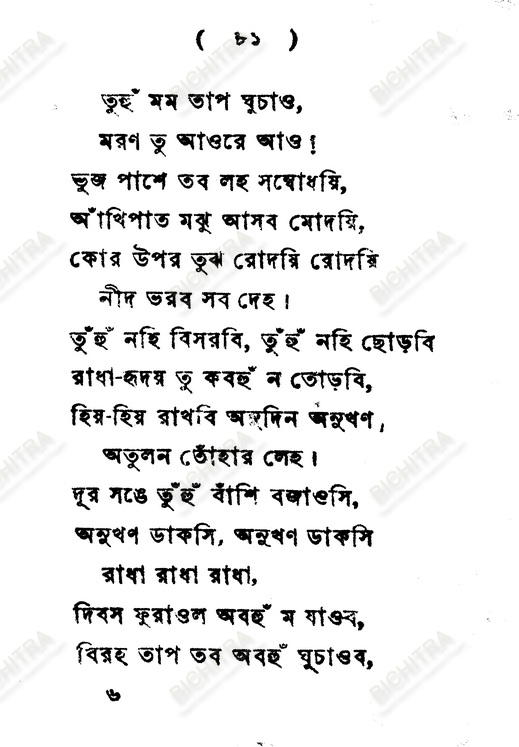 ( ৮১ )
তুহুঁ মম তাপ ঘুচাও,
মরণ তু আওরে আও!
ভুজ পাশে তব লহ সম্বোধয়ি,
আঁখিপাত মঝু আসব মোদয়ি,
কোর উপর তুঝ রোদয়ি রোদয়ি
নীদ ভরব সব দেহ।
তুঁহুঁ নহি বিসরবি, তুঁহুঁ নহি ছোড়বি
রাধা-হৃদয় তু কবহুঁ ন তোড়বি,
হিয়-হিয় রাখবি অনুদিন অনুখণ,
অতুলন তোঁহার লেহ।
দূর সঙে তুঁহুঁ বাঁশি বজাওসি,
অনুখণ ডাকসি, অনুখণ ডাকসি
রাধা রাধা রাধা,
দিবস ফুরাওল অবহুঁ ম যাওব,
বিরহ তাপ তব অবহুঁ ঘুচাওব,
৬
BICHITRA